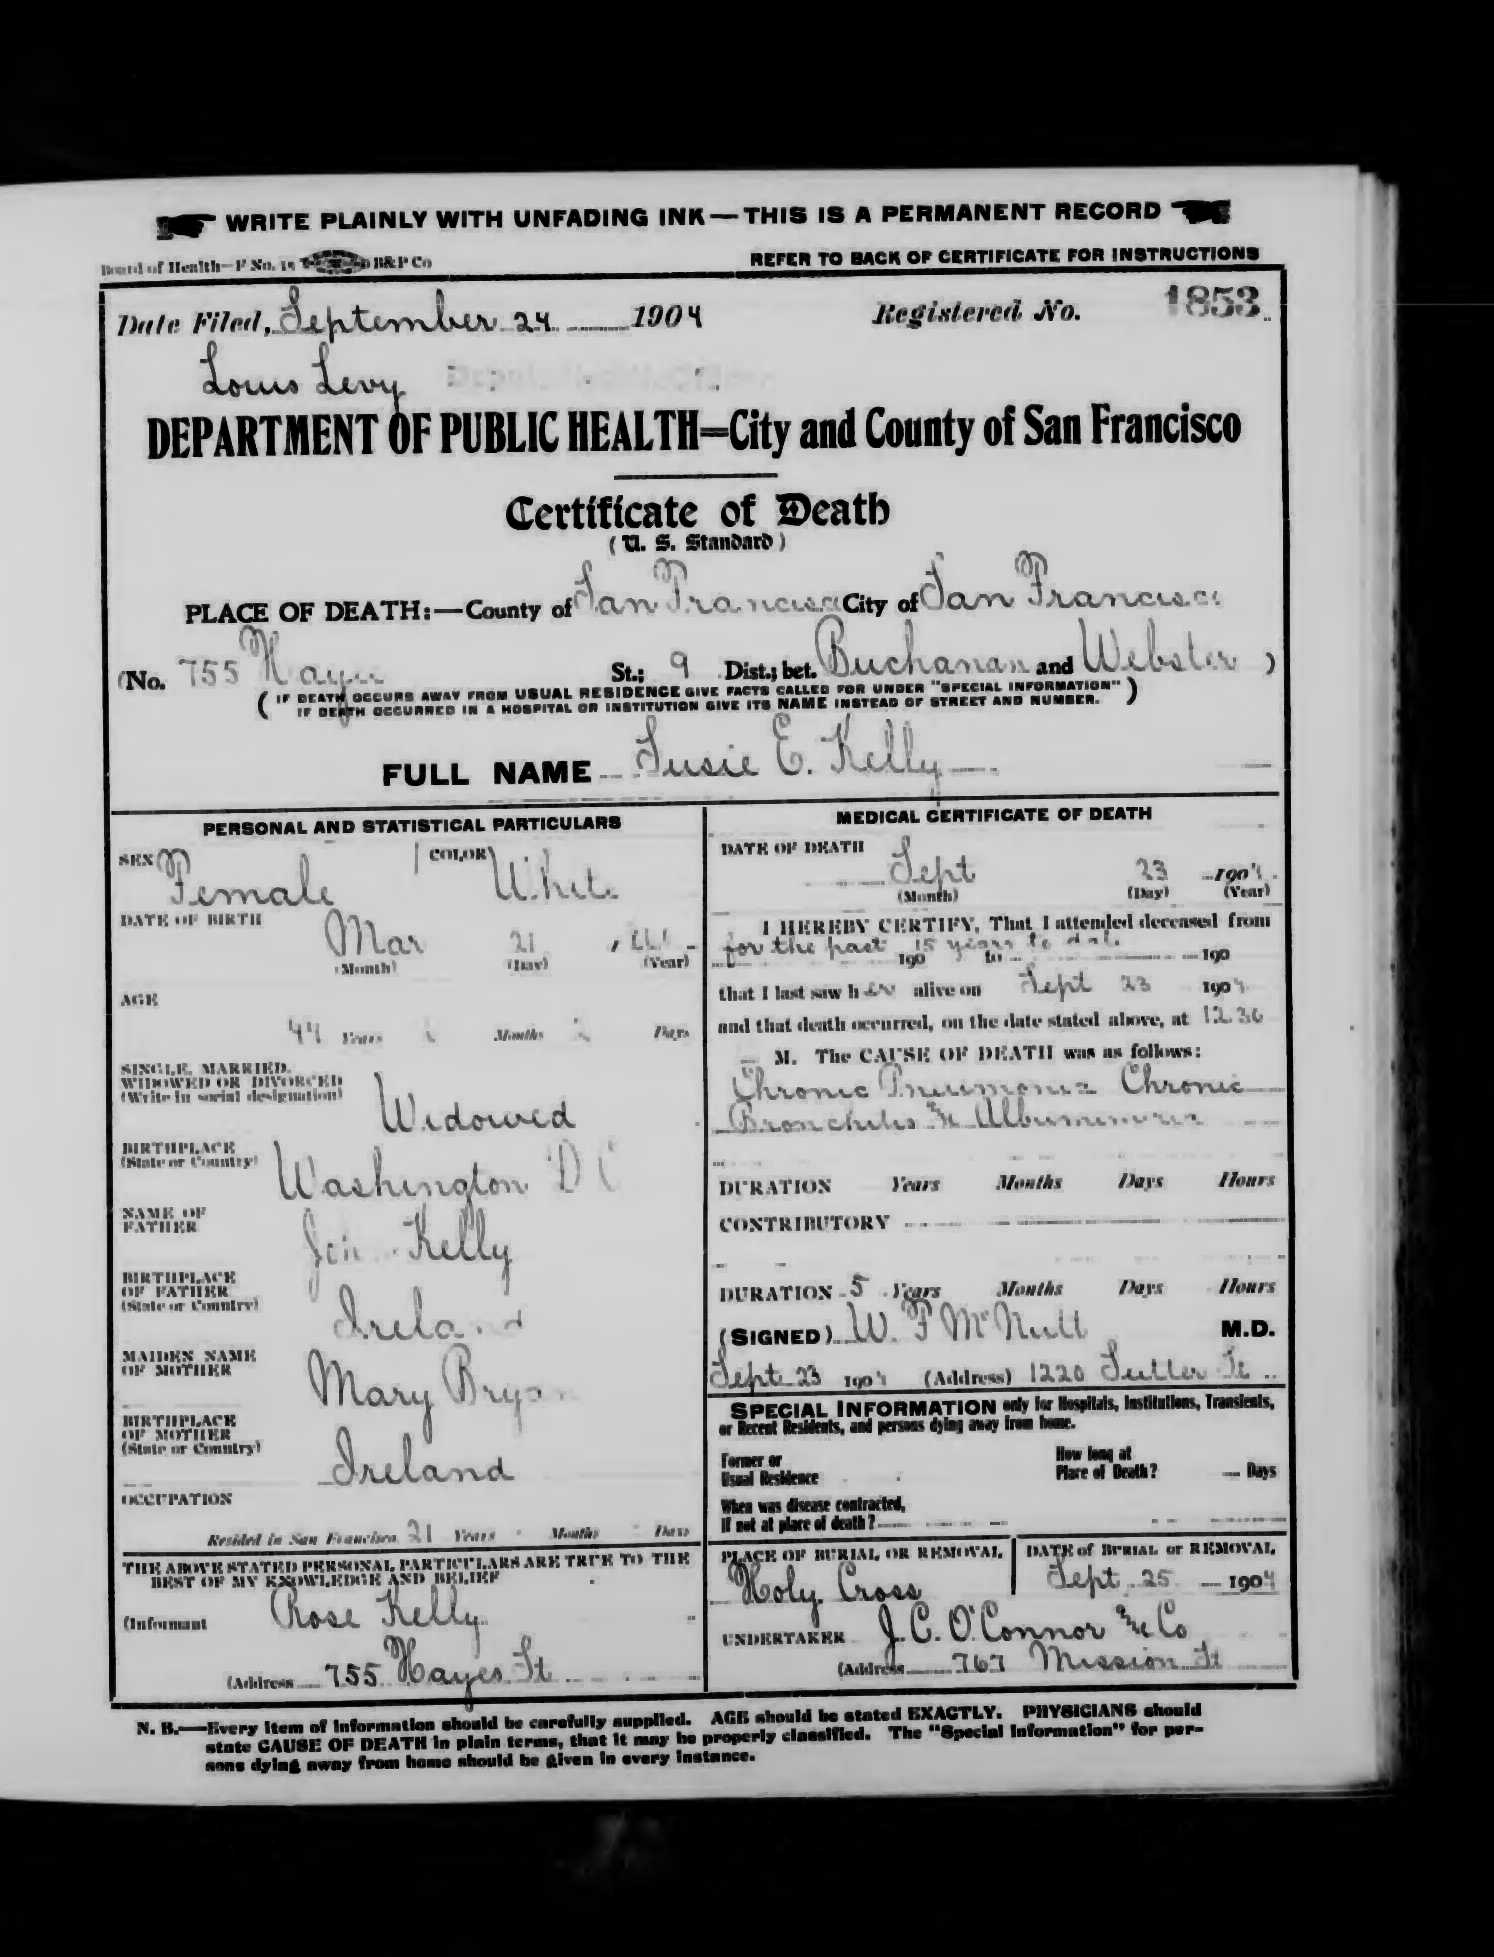 WRITE PLAINLY WITH UNFADING INK—THIS IS A PERMANENT RECORD
Board of Health—F No. 15 B&P Co
REFER TO BACK OF CERTIFICATE FOR INSTRUCTIONS
Date Filed, September 24 1904 Registered No. 1853
Louis Levy
DEPARTMENT OF PUBLIC HEALTH=City and County of San Francisco
Certificate of Death
(U. S. Standard)
PLACE OF DEATH:—County of San Francisco City of San Francisco
(No. 755 Hayes St.; 9 Dist.; bet. Buchanan and Webster )
( IF DEATH OCCURS AWAY FROM USUAL RESIDENCE GIVE FACTS CALLED FOR UNDER "SPECIAL INFORMATION" )
IF DEATH OCCURRED IN A HOSPITAL OR INSTITUTION GIVE ITS NAME INSTEAD OF STREET AND NUMBER.
FULL NAME Susie E. Kelly
PERSONAL AND STATISTICAL PARTICULARS
SEX Female COLOR White
DATE OF BIRTH
Mar 21
(Month) (Day) (Year)
AGE
44 Years Months 2 Days
SINGLE, MARRIED,
WIDOWED OR DIVORCED
(Write in social designation)
Widowed
BIRTHPLACE
(State or Country)
Washington D C
NAME OF
FATHER
Kelly
BIRTHPLACE
OF FATHER
(State or Country)
Ireland
MAIDEN NAME
OF MOTHER
Mary Bryan
BIRTHPLACE
OF MOTHER
(State or Country)
Ireland
OCCUPATION
Resided in San Francisco 21 Years Months Days
THE ABOVE STATED PERSONAL PARTICULARS ARE TRUE TO THE
BEST OF MY KNOWLEDGE AND BELIEF
(Informant Rose Kelly
(Address 755 Hayes St
MEDICAL CERTIFICATE OF DEATH
DATE OF DEATH
Sept 23 1904
(Month) (Day) (Year)
I HEREBY CERTIFY, That I attended deceased from
for the past 15 years to date
190 to 190
that I last saw her alive on Sept 23 1904
and that death occurred, on the date stated above, at 12.30
M. The CAUSE OF DEATH was as follows:
Chronic Pneumonia Chronic
Bronchitis & Albuminuria
DURATION Years Months Days Hours
CONTRIBUTORY
DURATION 5 Years Months Days Hours
(SIGNED) W. F McNutt M.D.
Sept 23 1904 (Address) 1220 Sutter St
SPECIAL INFORMATION only for Hospitals, Institutions, Transients,
or Recent Residents, and persons dying away from home.
Former or
Usual Residence
How long at
Place of Death? Days
When was disease contracted,
If not at place of death?
PLACE OF BURIAL OR REMOVAL
Holy Cross
DATE of BURIAL or REMOVAL
Sept 25 1904
UNDERTAKER J. C. O'Connor & Co
(Address 767 Mission St
N. B.—Every item of information should be carefully supplied. AGE should be stated EXACTLY. PHYSICIANS should
state CAUSE OF DEATH in plain terms, that it may be properly classified. The "Special Information" for per-
sons dying away from home should be given in every instance.